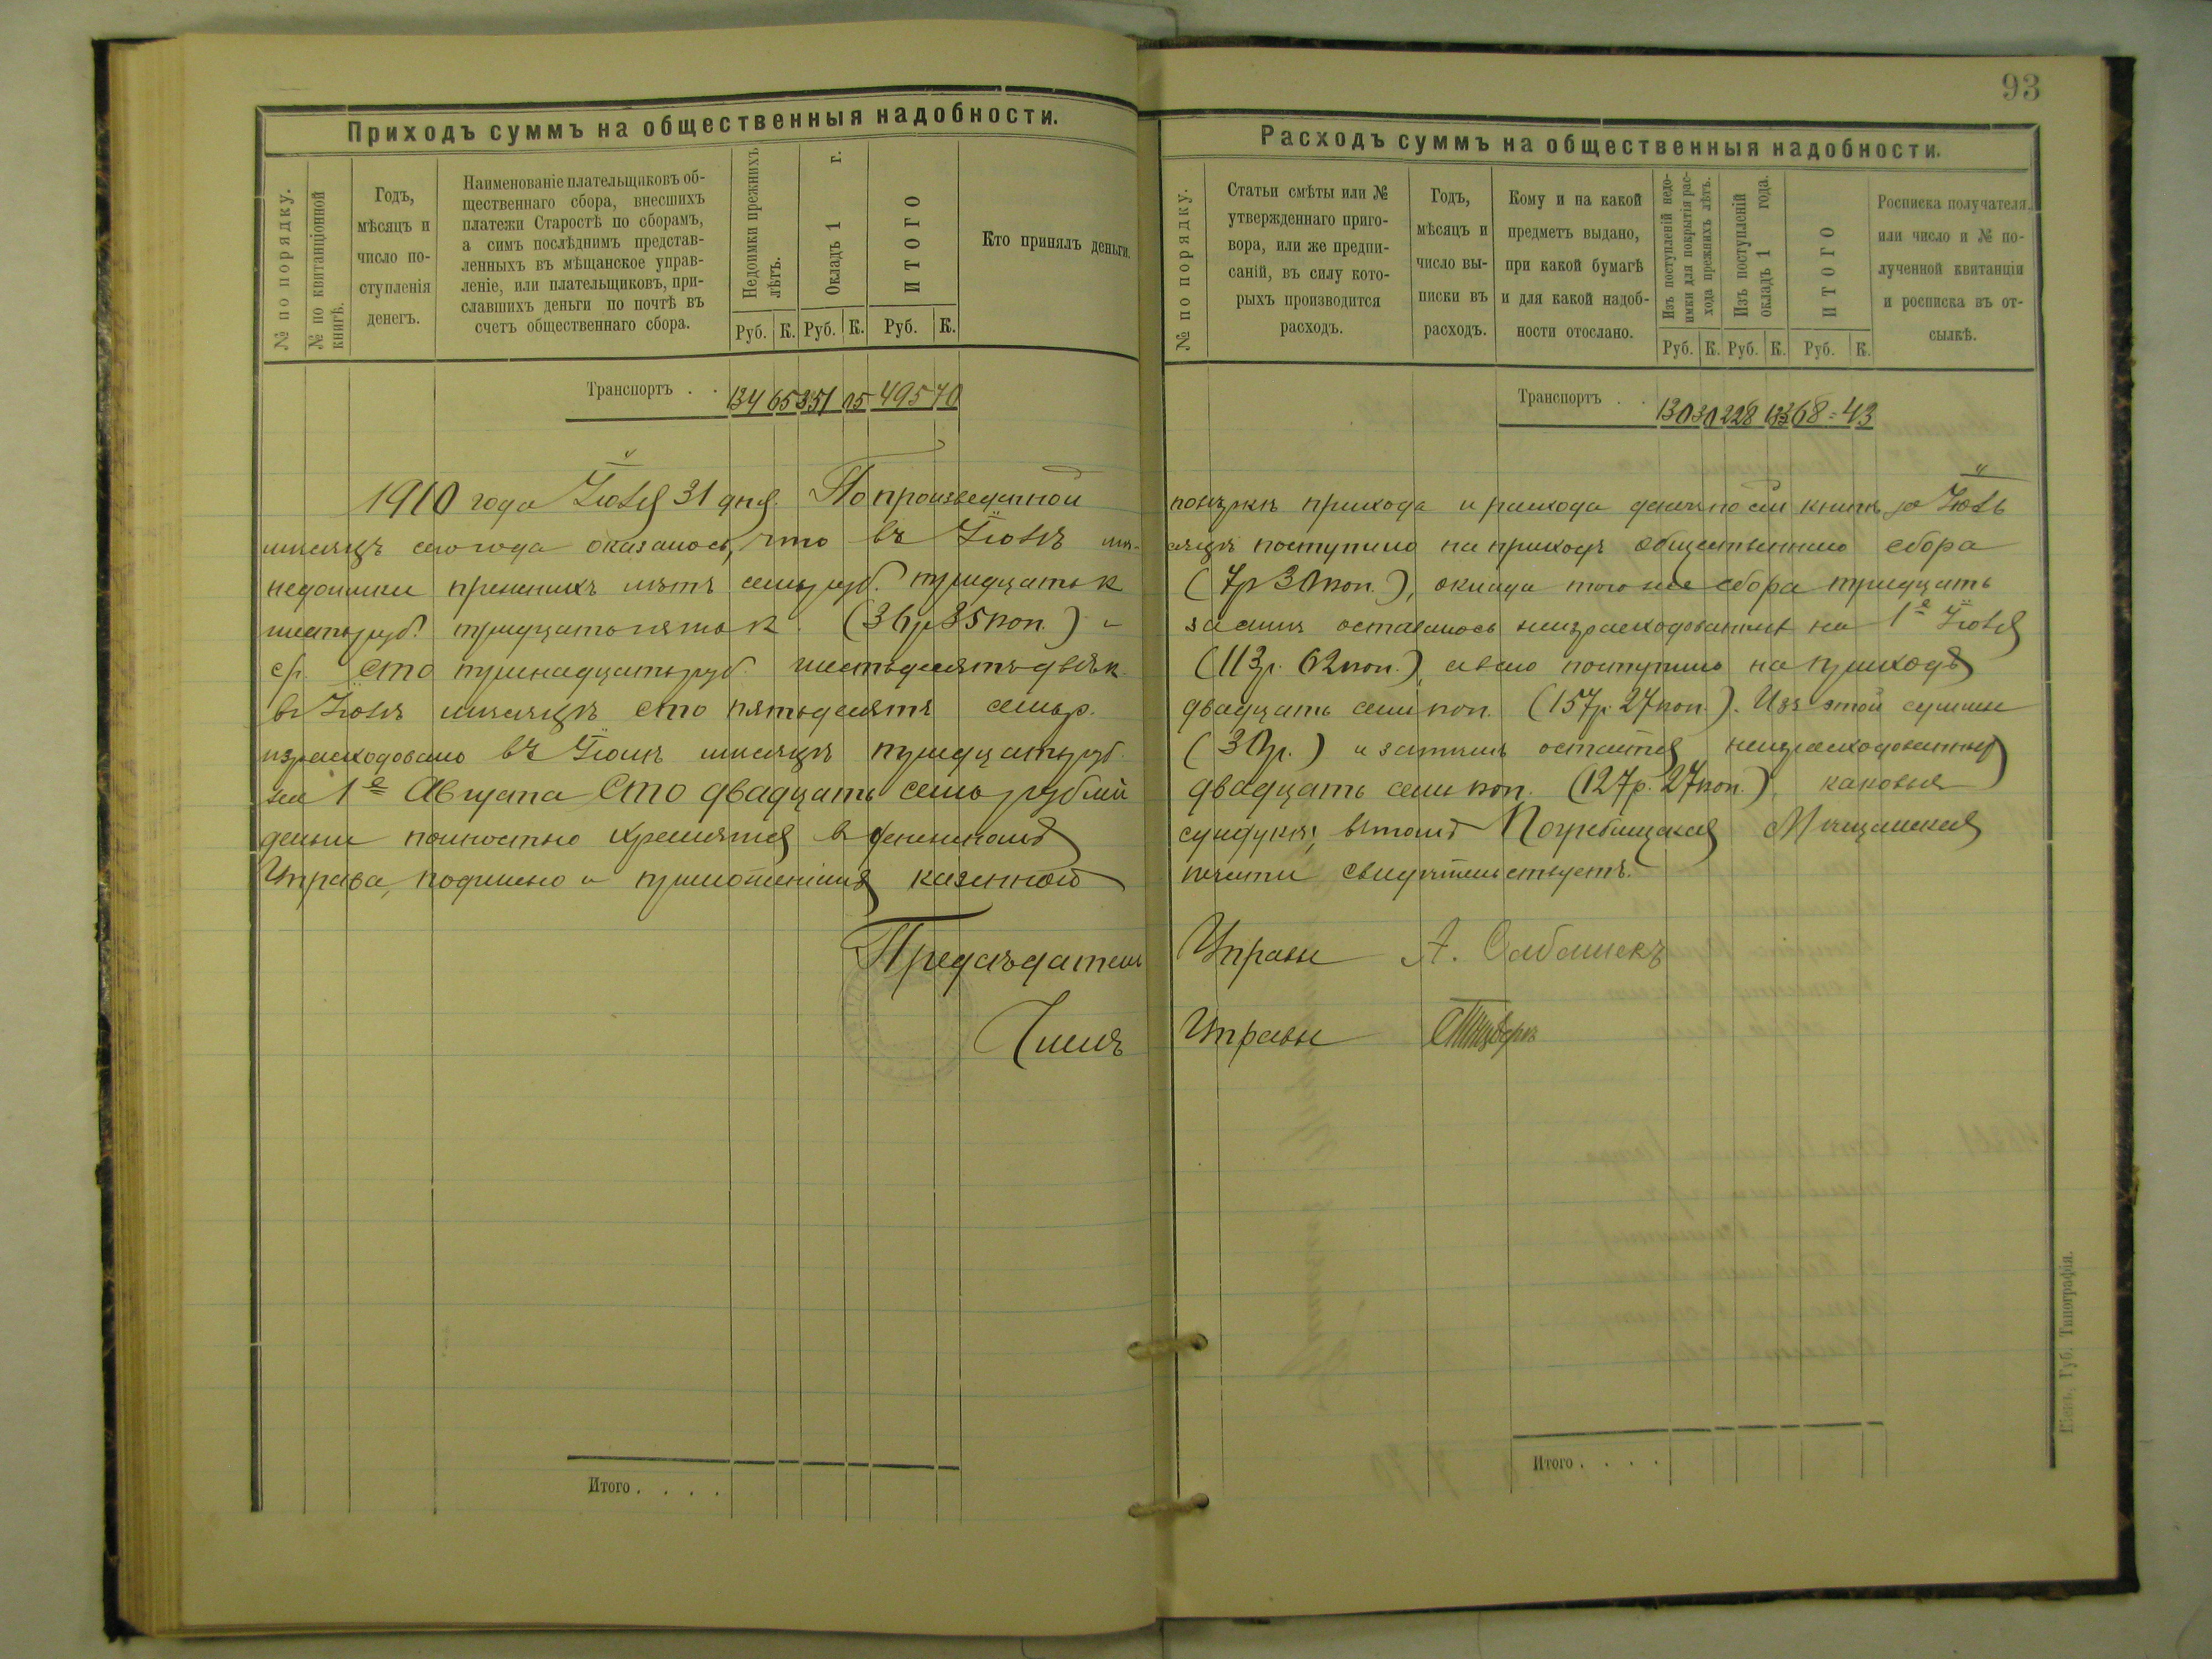 93
Приходъ суммъ на общественныя надобности.
№ по порядку.
№ по квитанціонной книгѣ.
Годъ,
мѣсяцъ и
число по-
ступленія
денегъ.
Наименованіе плательщиковъ об-
щественнаго сбора, внесшихъ
платежи Старостѣ по сборамъ,
а симъ послѣднимъ представ-
ленныхъ въ мѣщанское управ-
леніе, или плательщиковъ, при-
славшихъ деньги по почтѣ въ
счетъ общественнаго сбора.
Недоимки прежнихъ лѣтъ.
Окладъ 1 г.
ИТОГО
Руб. К. Руб. К. Руб. К.
Кто принялъ деньги.
Транспортъ . . 134 65 351 05 495 70
1910 года Іюля 31 дня. По произведенной
мѣсяцъ сего года оказалось, что въ Іюлѣ мѣ-
недоимки прежнихъ лѣтъ семь руб. тридцать к
шесть руб. тридцать пять к. (36 р 35 коп.) и
ср. Сто тринадцать руб. шестьдесятъ двѣ к.
въ Іюлѣ мѣсяцѣ сто пятьдесятъ семь р.
израсходовано въ Іюлѣ мѣсяцѣ тридцать руб.
на 1е Августа Сто двадцать семь рублей
деньги полностью хранятся въ денежномъ
Управа, подписью и приложеніемъ казенной
Предсѣдатель
Членъ
Итого . . . .
Расходъ суммъ на общественныя надобности.
№ по порядку.
Статьи смѣты или №
утвержденнаго приго-
вора, или же предпи-
саній, въ силу кото-
рыхъ производится
расходъ.
Годъ,
мѣсяцъ и
число вы-
писки въ
расходъ.
Кому и на какой
предметъ выдано,
при какой бумагѣ
и для какой надоб-
ности отослано.
Изъ поступленій недо-
имки для покрытія рас-
хода прежнихъ лѣтъ.
Изъ поступленій
окладъ 1 года.
ИТОГО
Руб. К. Руб. К. Руб. К.
Росписка получателя.
или число и № по-
лученной квитанціи
и росписка въ от-
сылкѣ.
Транспортъ . . 130 30 228 13 368 = 43
повѣркѣ прихода и расхода денегъ по сей книгѣ за Іюль
сяцѣ поступило на приходъ общественнаго сбора
(7 р 30 коп.), оклада того же сбора тридцать
за симъ оставалось неизрасходованныхъ на 1е Іюля
(113 р. 62 коп.), а всего поступило на приходъ
двадцать семь коп. (157 р. 27 коп.). Изъ этой суммы
(30 р.) и затѣмъ остается неизрасходованныхъ
двадцать семь коп. (127 р. 27 коп.), каковыя
сундукѣ, въ томъ Погребищская Мѣщанская
печати свидѣтельствуетъ.
Управы А.
Управы
Итого . . . .
Кіевъ, Губ. Типографія.